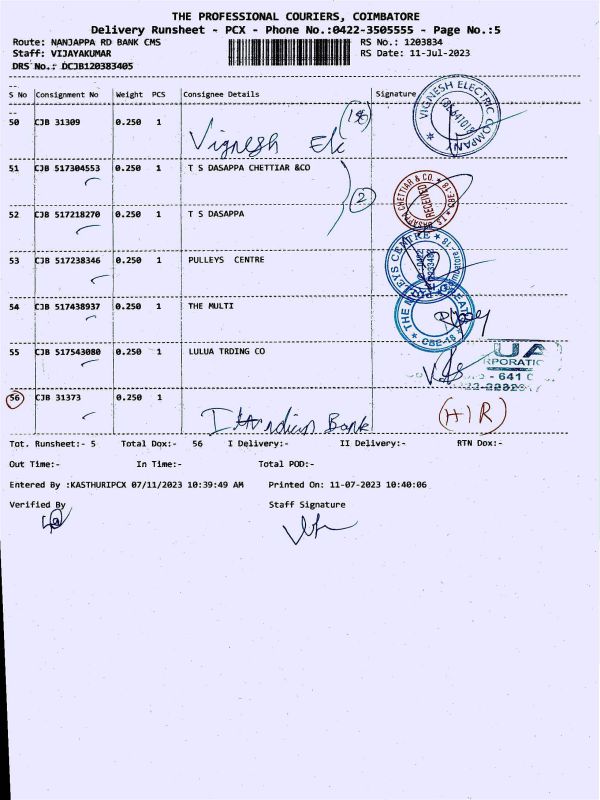 THE PROFESSIONAL COURIERS, COIMBATORE
Delivery Runsheet - PCX - Phone No.:0422-3505555 - Page No.:5
Route: NANJAPPA RD BANK CMS RS No.: 1203834
Staff: VIJAYAKUMAR RS Date: 11-Jul-2023
DRS No.: DCJB120383405
S No Consignment No Weight PCS Consignee Details Signature
50 CJB 31309 0.250 1 Vignesh Ele
VIGNESH ELECTRIC COMPANY
51 CJB 517304553 0.250 1 T S DASAPPA CHETTIAR &CO
2
T.S. DASAPPA CHETTIAR & CO. CBE-18
RECEIVED
52 CJB 517218270 0.250 1 T S DASAPPA
53 CJB 517238346 0.250 1 PULLEYS CENTRE
PULLEYS CENTRE
54 CJB 517438937 0.250 1 THE MULTI
THE CBE-18
55 CJB 517543080 0.250 1 LULUA TRDING CO
- 641
56 CJB 31373 0.250 1 Indian Bank (HIR)
Tot. Runsheet:- 5 Total Dox:- 56 I Delivery:- II Delivery:- RTN Dox:-
Out Time:- In Time:- Total POD:-
Entered By :KASTHURIPCX 07/11/2023 10:39:49 AM Printed On: 11-07-2023 10:40:06
Verified By Staff Signature